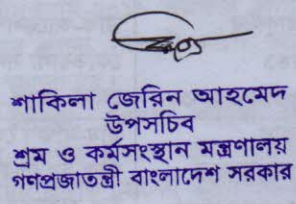 শাকিলা জেরিন আহমেদ
উপসচিব
শ্রম ও কর্মসংস্থান মন্ত্রণালয়
গণপ্রজাতন্ত্রী বাংলাদেশ সরকার